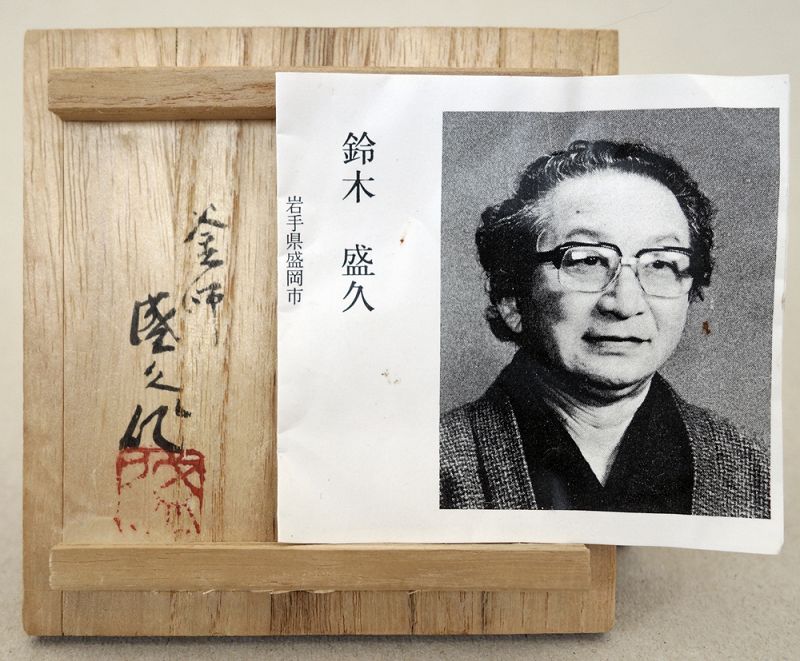 鈴木 盛久
岩手県盛岡市
釜師
盛久作